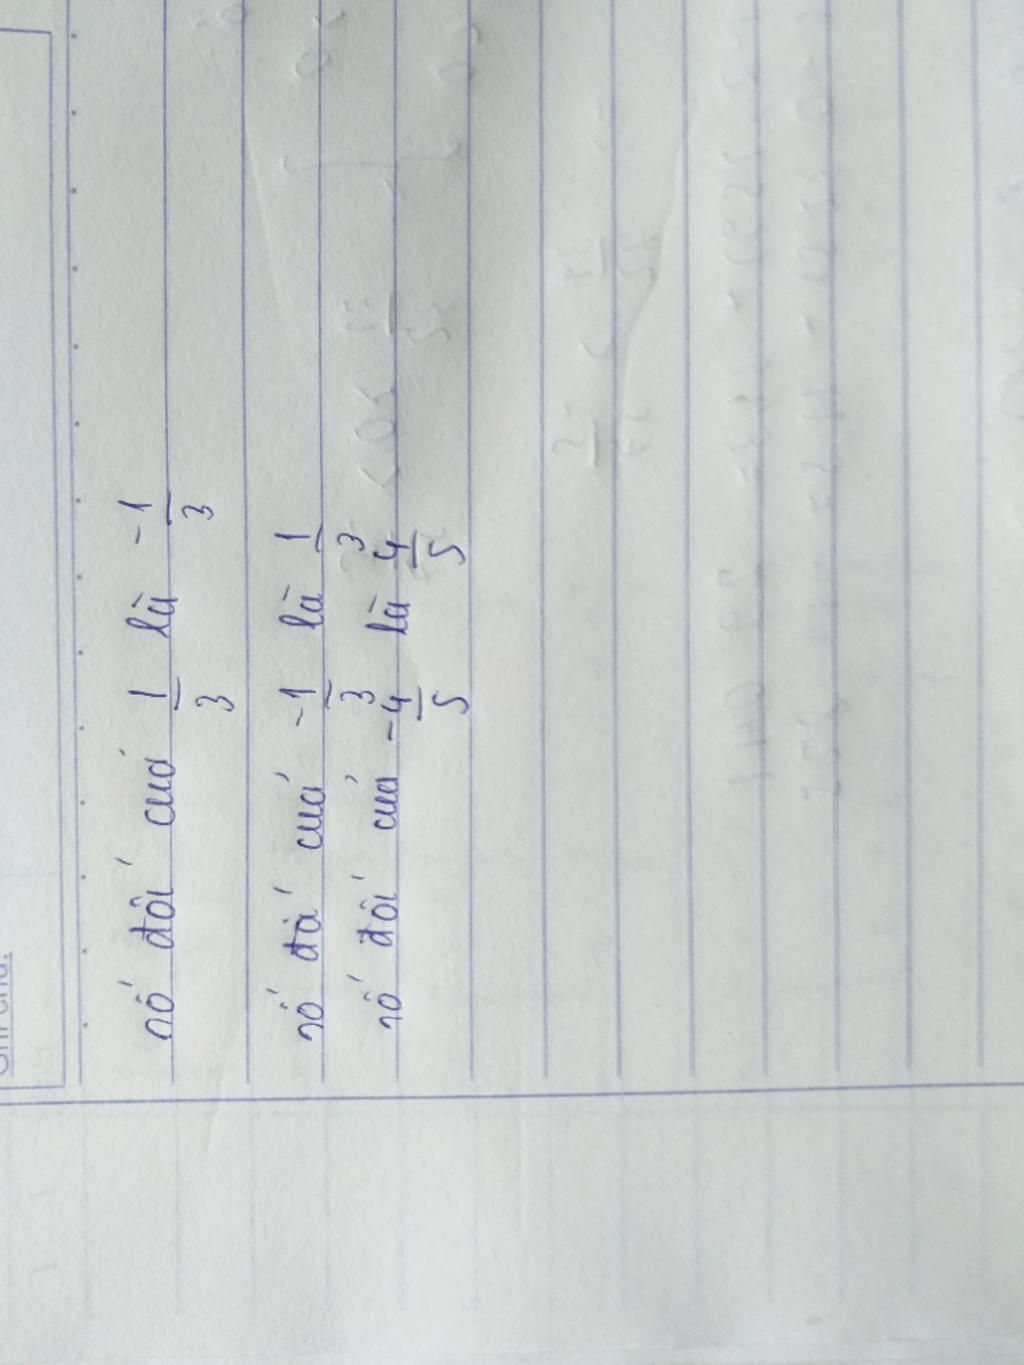 Ghi chú:
số đối của 1/3 là -1/3
số đối của -1/3 là 1/3
số đối của -4/5 là 4/5